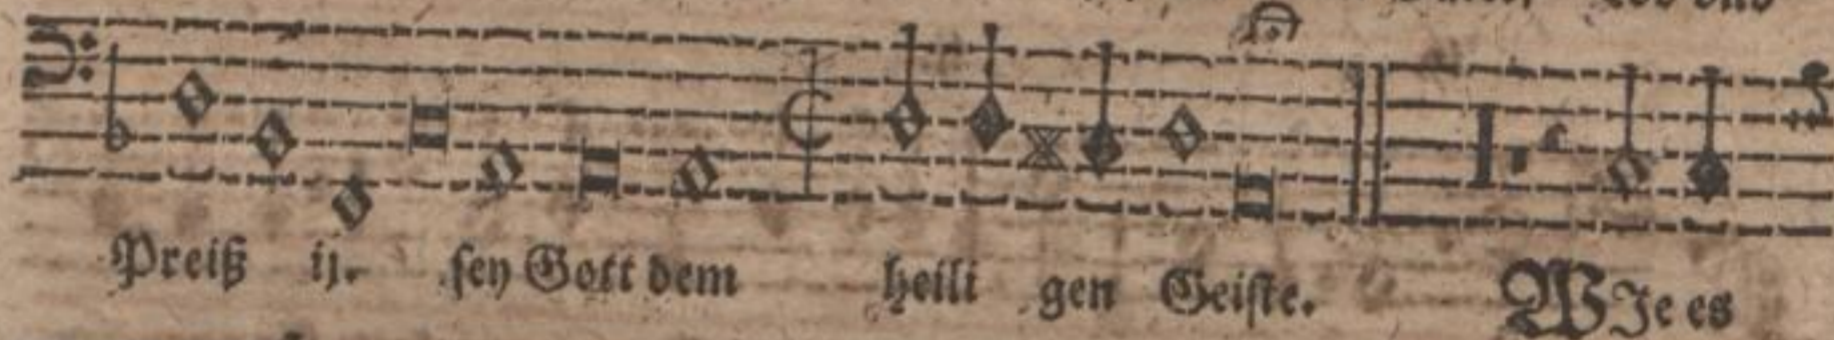 Preiß ij. sey Gott dem heili gen Geiste. WJe es